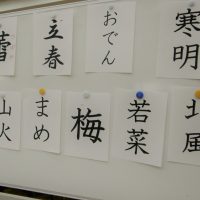 寒明
おでん
立春
北風
若菜
梅
まめ
山火